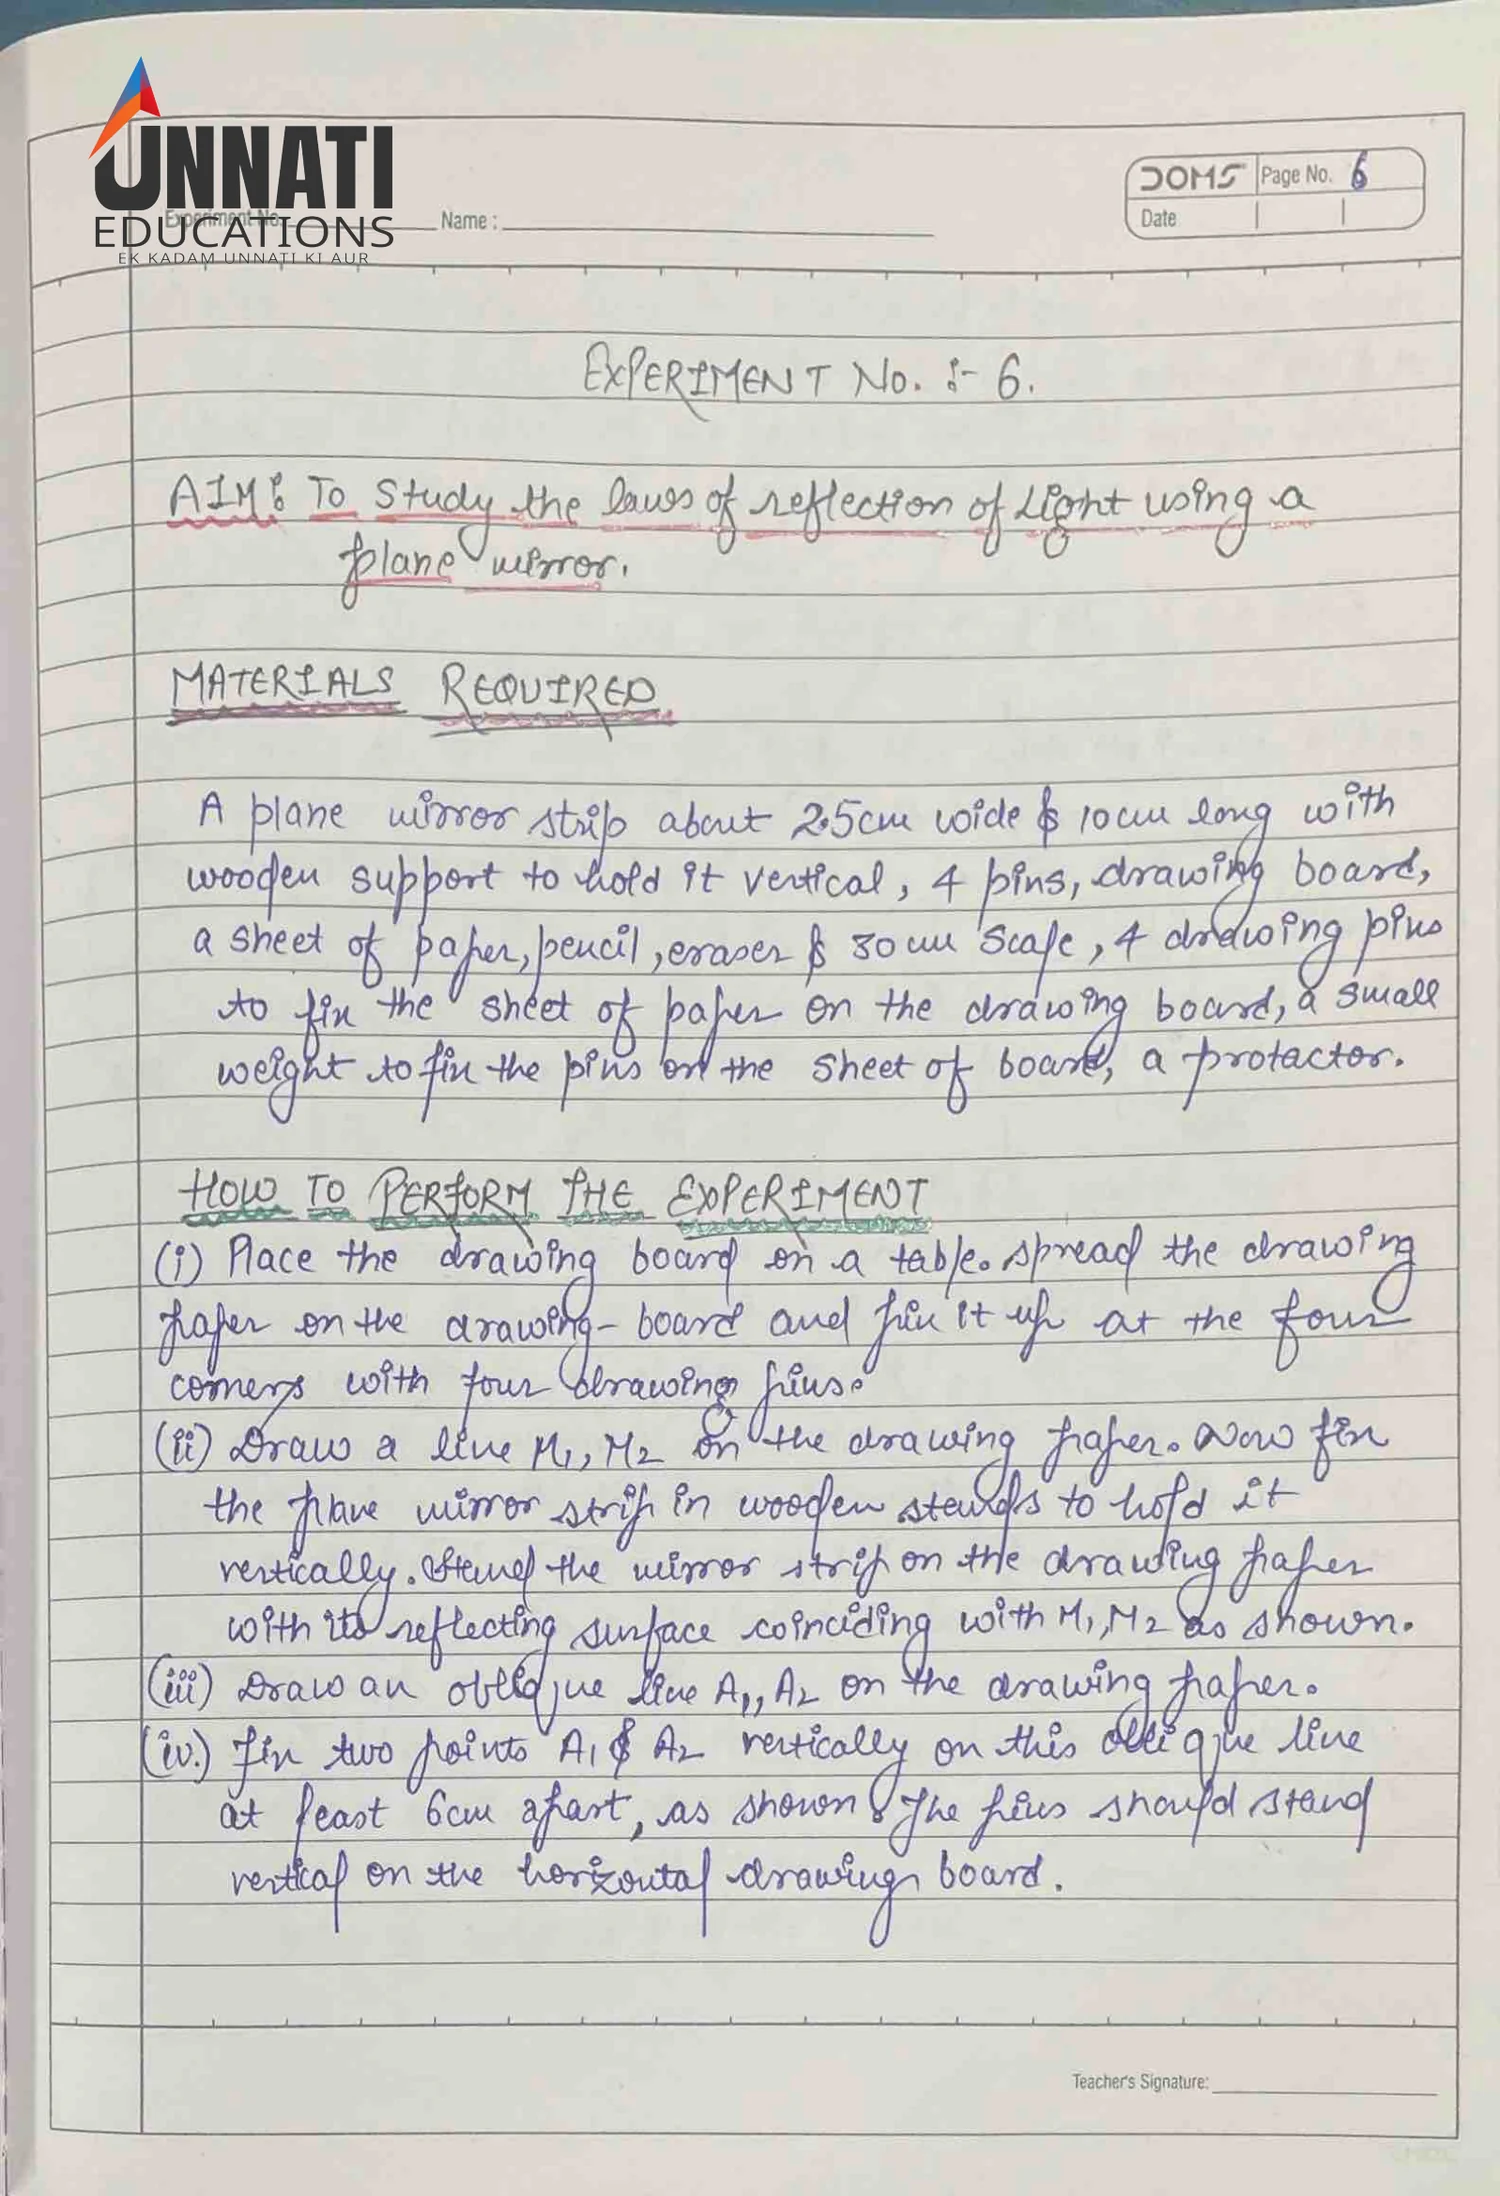 UNNATI
EDUCATIONS
EK KADAM UNNATI KI AUR
Experiment No. Name :
DOMS Page No. 6
Date
EXPERIMENT NO. :- 6.
AIM: To Study the laws of reflection of Light using a
plane mirror.
MATERIALS REQUIRED
A plane mirror strip about 2.5cm wide & 10cm long with
wooden support to hold it vertical, 4 pins, drawing board,
a sheet of paper, pencil, eraser & 30cm Scale, 4 drawing pins
to fix the sheet of paper on the drawing board, a small
weight to fix the pins on the sheet of board, a protactor.
HOW TO PERFORM THE EXPERIMENT
(i) Place the drawing board on a table. spread the drawing
paper on the drawing-board and fix it up at the four
corners with four drawing pins.
(ii) Draw a line M1, M2 on the drawing paper. Now fix
the plane mirror strip in wooden stands to hold it
vertically. Stand the mirror strip on the drawing paper
with its reflecting surface coinciding with M1, M2 as shown.
(iii) Draw an oblique line A1, A2 on the drawing paper.
(iv.) Fix two points A1 & A2 vertically on this oblique line
at least 6cm apart, as shown. The pins should stand
vertical on the horizontal drawing board.
Teacher's Signature: